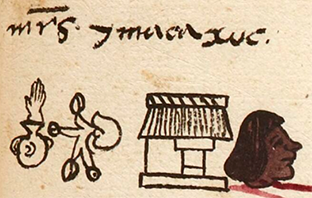 mr̅s. ymacaxuc.